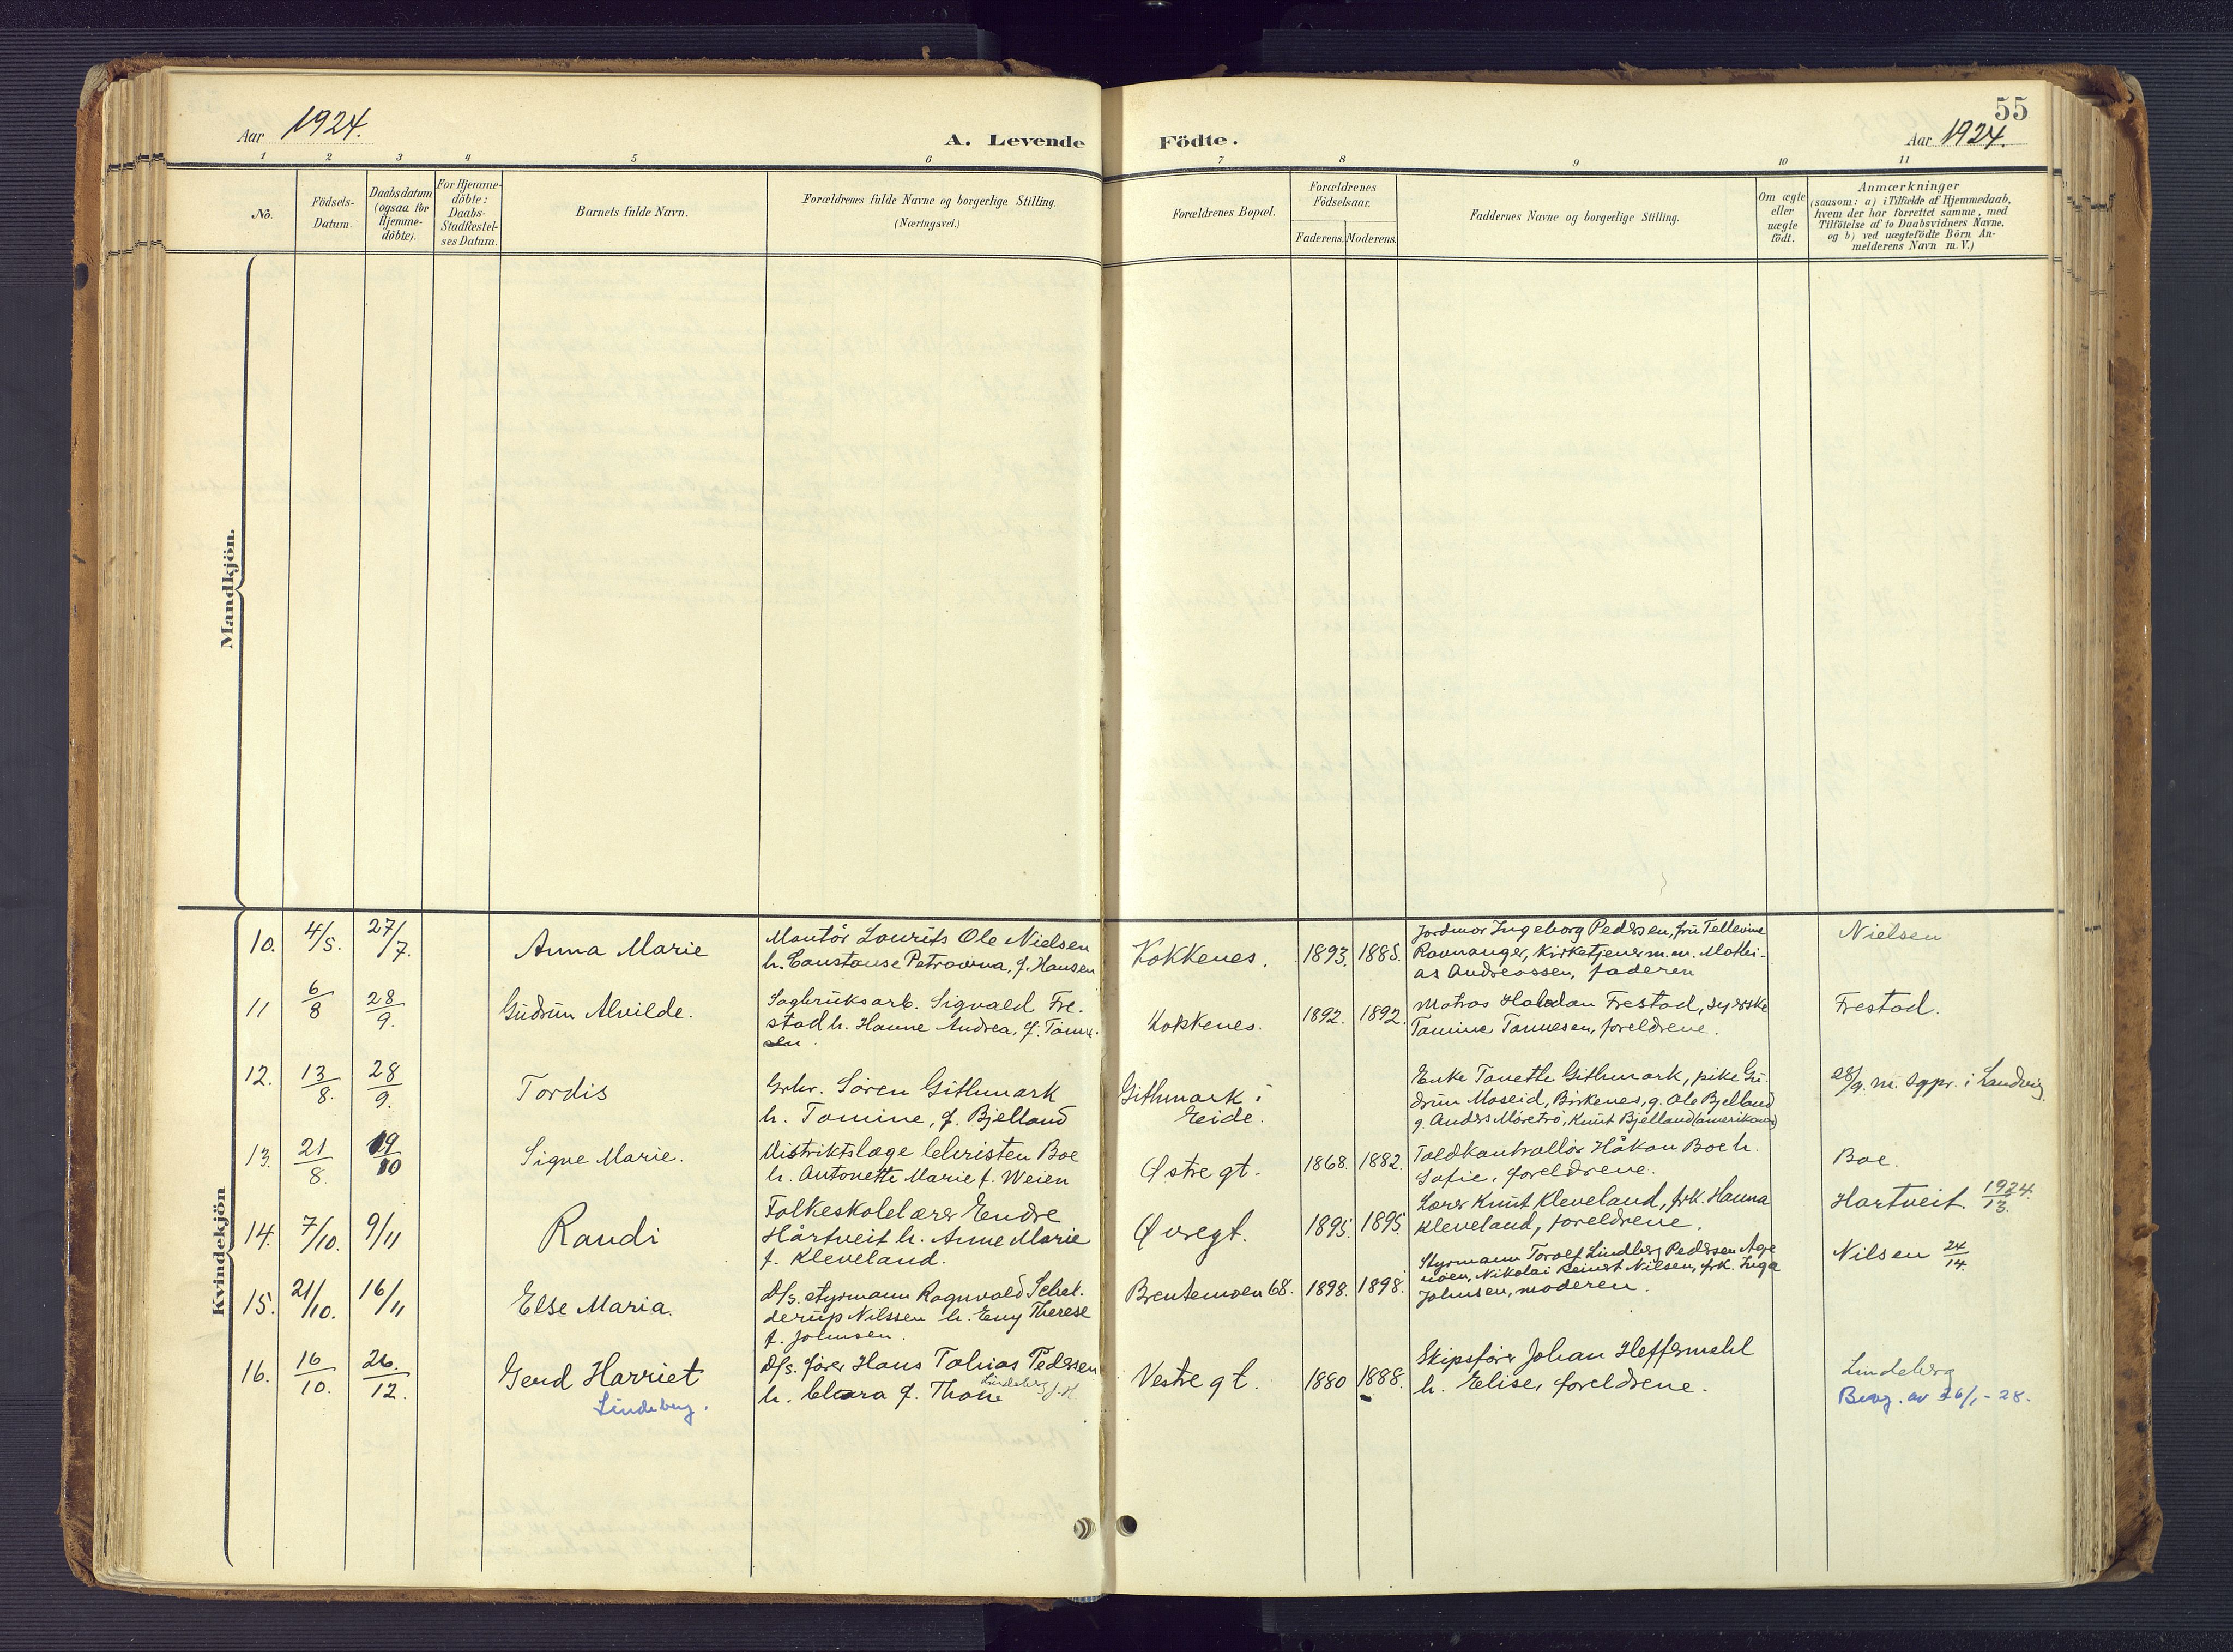 Aar 1924.
A. Levende Födte.
55
Aar 1924.
1 2 3 4 5 6 7 8 9 10 11
No.
Födsels-
Datum.
Daabsdatum
(ogsaa for
Hjemme-
döbte).
For Hjemme-
döbte:
Daabs-
Stadfæstel-
ses Datum.
Barnets fulde Navn.
Forældrenes fulde Navne og borgerlige Stilling.
(Næringsvei.)
Forældrenes Bopæl.
Forældrenes
Födselsaar.
Faderens. Moderens.
Faddernes Navne og borgerlige Stilling.
Om ægte
eller
uægte
födt.
Anmærkninger
(saasom: a) i Tilfælde af Hjemmedaab,
hvem der har forrettet samme, med
Tilföielse af to Daabsvidners Navne.
og b) ved uægtefödte Börn An-
melderens Navn m. V.)
Mandkjön.
Kvindekjön
10. 4/5. 27/7. Anna Marie
Montör Laurits Ole Nielsen
h. Constanse Petrowna, f. Hansen
Kokkenes. 1893. 1885.
Jordmor Ingeborg Pedersen, fru Tellevine
Ravnanger, Kirketjener m.m. Mathi-
as Andreassen, faderen
Nielsen
11 6/8 28/9. Gudrun Alvilde.
Sagbruksarb. Sigvald Fre-
stad h. Hanne Andrea, f. Tønne-
sen.
Kokkenes. 1892. 1892.
Matros Halvdan Frestad, syerske
Tomine Tønnesen, foreldrene.
Frestad.
12. 13/8. 28/9. Tordis
Grbr. Søren Githmark
h. Tomine, f. Bjelland
Githmark i
Eide.
Enke Tonette Githmark, pike Gu-
drun Moseid, Birkenes, g. Ole Bjelland
g. Anders Møretrø, Knut Bjelland (amerikaner)
28/9. m. sgpr. i Landvig
13. 21/8. 19/10 Signe Marie.
Distriktslæge Christen Boe
h. Antonette Marie f. Weien
Østregt. 1868. 1882.
Toldkontrollör Håkon Boe h.
Sofie, foreldrene.
Boe.
14. 7/10. 9/11 Randi
Folkeskolelærer Endre
Hårtveit h. Anne Marie
f. Kleveland.
Øvregt. 1895. 1895.
Lærer Knut Kleveland, frk. Hanna
Kleveland, foreldrene.
Hartveit 1924./13.
15. 21/10. 16/11 Else Maria.
D/s. styrmann Ragnvald Schel-
derup Nilssen h. Eny Therese
f. Johnsen.
Brentemoen 68. 1898. 1898.
Styrmann Torolf Lindberg Pedersen Age
moen, Nikolai Reinert Nilsen, frk. Inga
Johnsen, moderen.
Nilsen 24/14.
16. 16/10. 26./12. Gerd Harriet
Lindeberg.
D/s. fører Hans Tobias Pedersen
Lindeberg
h. Clara f. Thone
Vestregt. 1880 1888.
Skipsfører Johan Heffermehl
h. Elise, foreldrene.
Lindeberg
Bevg. av 26/1-28.